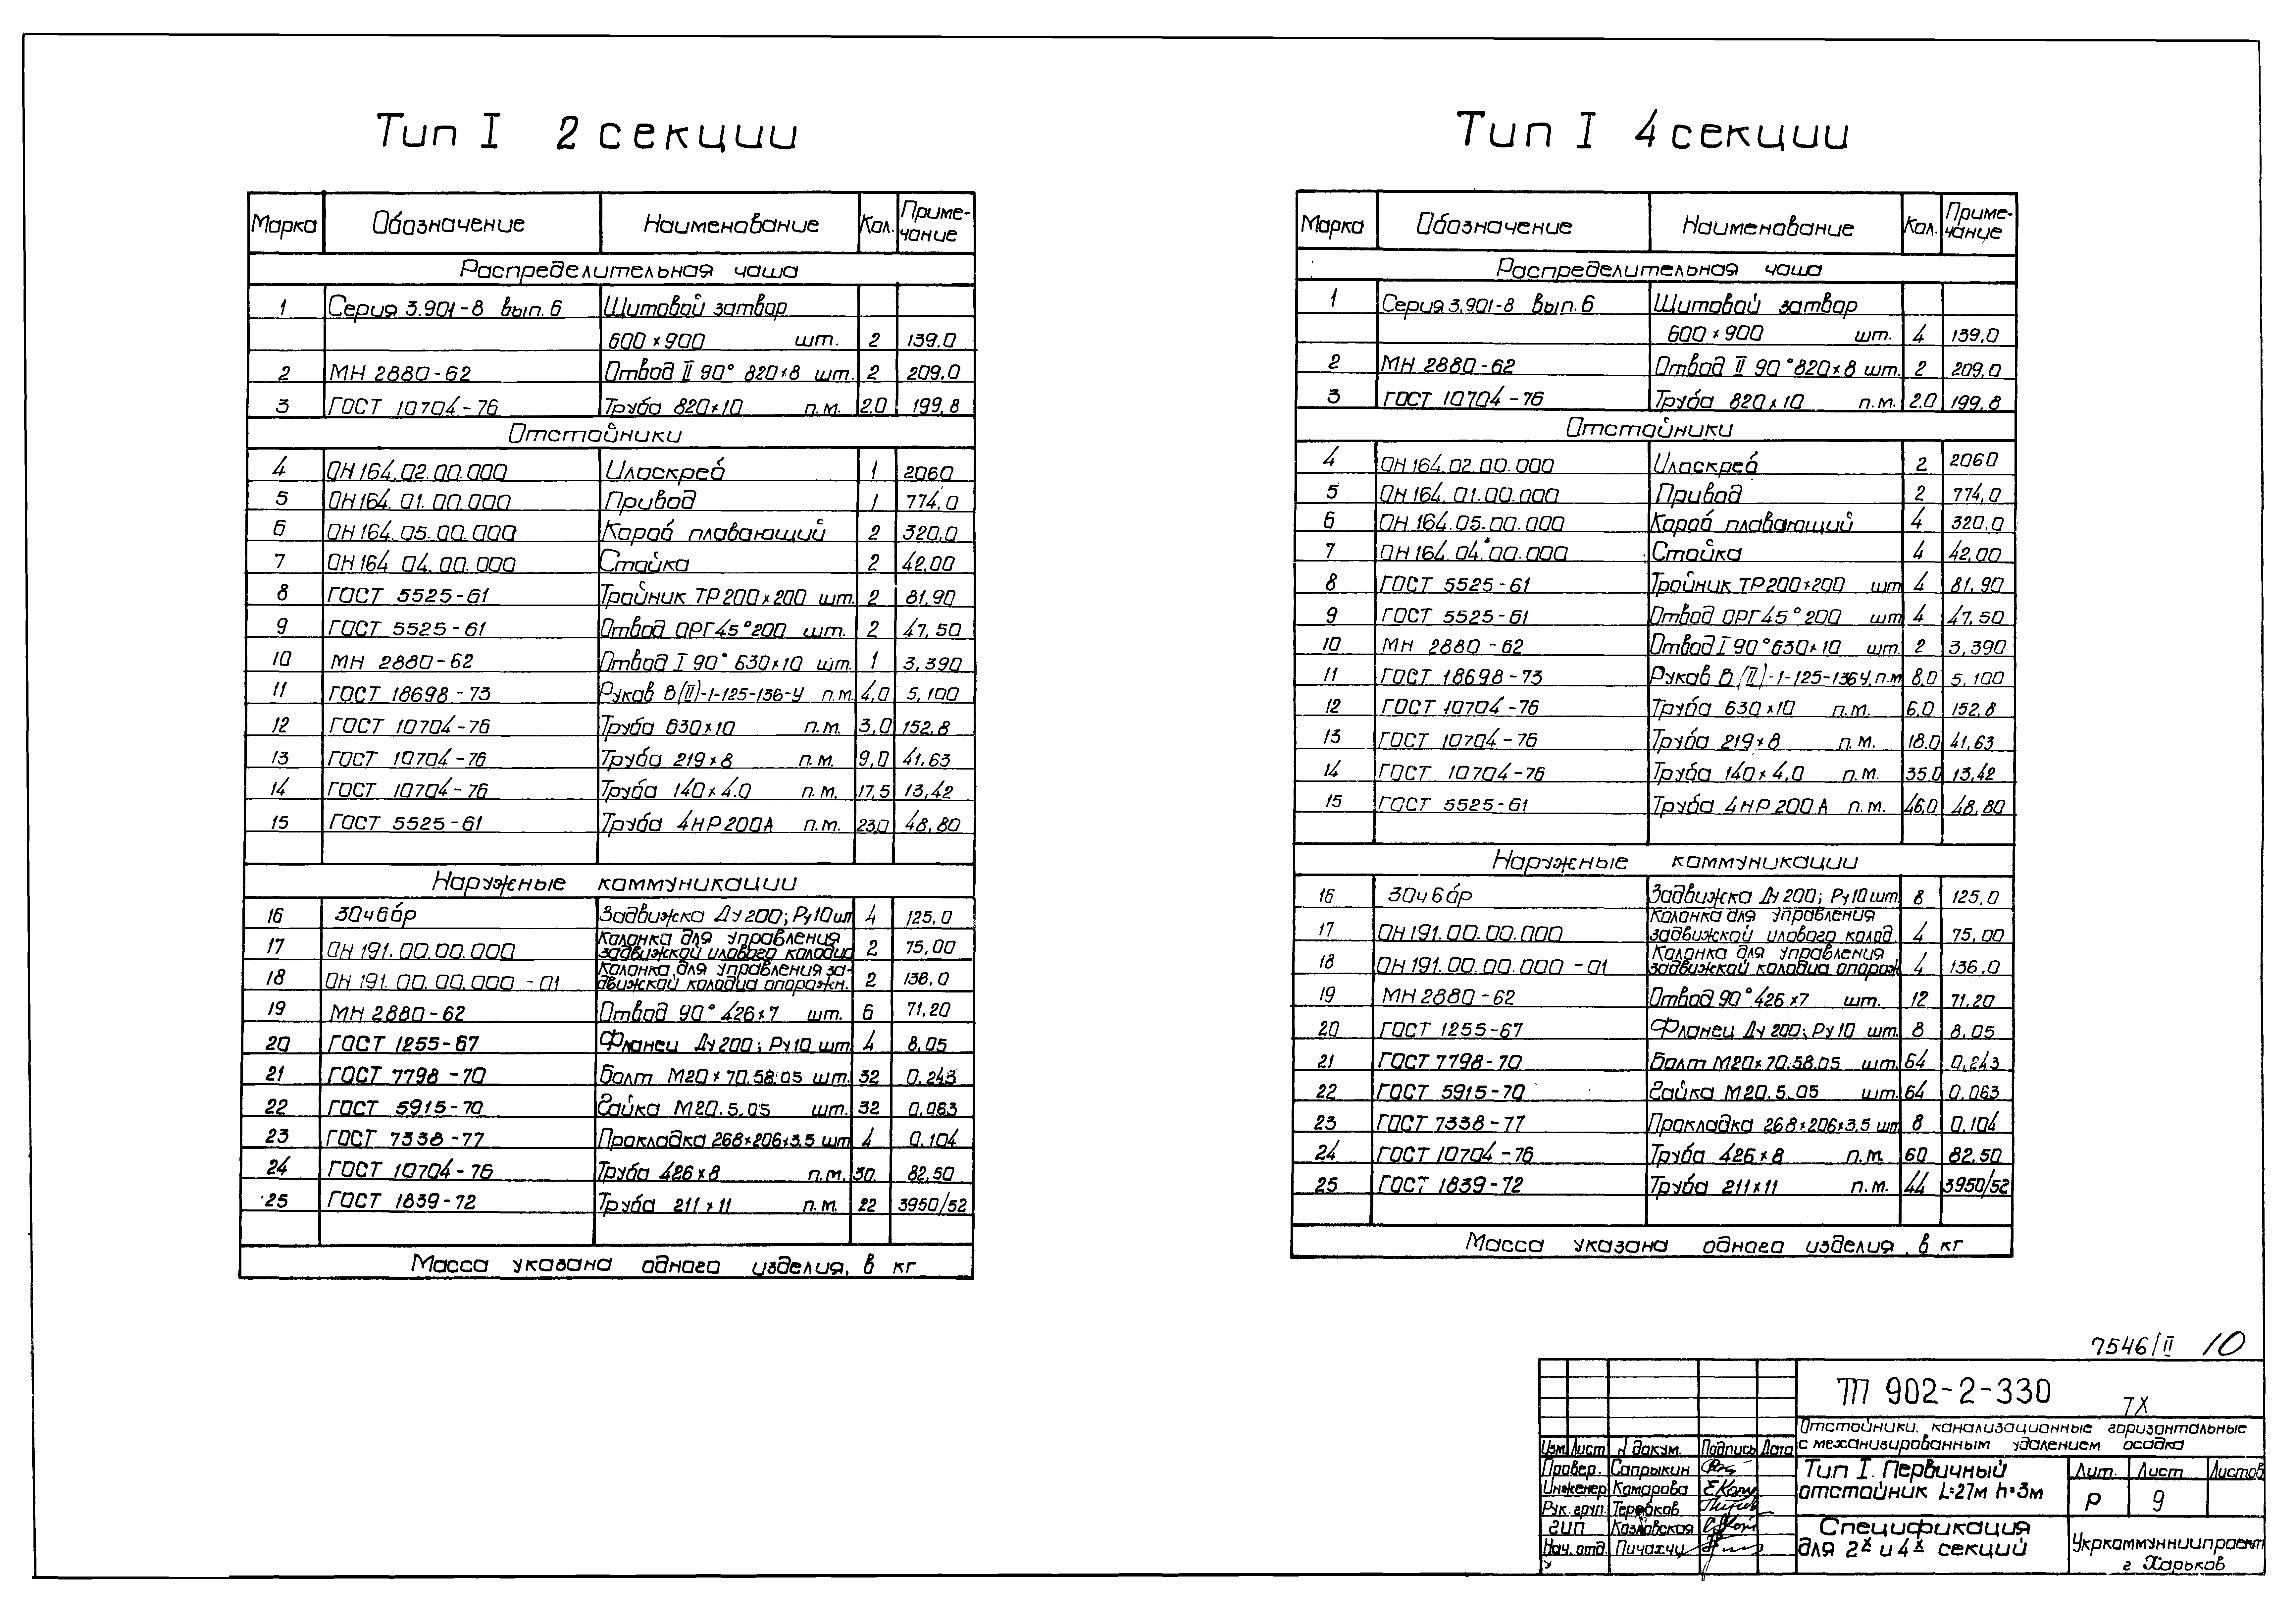 Тип I 2 секции
Марка Обозначение Наименование Кол. Приме-
чание
Распределительная чаша
1 Серия 3.901-8 вып.6 Щитовой затвор
600×900 шт. 2 139,0
2 МН 2880-62 Отвод II 90° 820×8 шт. 2 209,0
3 ГОСТ 10704-76 Труба 820×10 п.м. 2,0 199,8
Отстойники
4 ОН 164.02.00.000 Илоскреб 1 2060
5 ОН 164.01.00.000 Привод 1 774,0
6 ОН 164.05.00.000 Короб плавающий 2 320,0
7 ОН 164 04.00.000 Стойка 2 42,00
8 ГОСТ 5525-61 Тройник ТР 200×200 шт. 2 81,90
9 ГОСТ 5525-61 Отвод ОРГ 45° 200 шт. 2 47,50
10 МН 2880-62 Отвод I 90° 630×10 шт. 1 3,390
11 ГОСТ 18698-73 Рукав В(II)-1-125-136-У п.м. 4,0 5,100
12 ГОСТ 10704-76 Труба 630×10 п.м. 3,0 152,8
13 ГОСТ 10704-76 Труба 219×8 п.м. 9,0 41,63
14 ГОСТ 10704-76 Труба 140×4.0 п.м. 17,5 13,42
15 ГОСТ 5525-61 Труба 4НР 200А п.м. 23,0 48,80
Наружные коммуникации
16 30ч6бр Задвижка Ду 200; Ру10 шт 4 125,0
17 ОН 191.00.00.000 Колонка для управления
задвижкой илового колодца 2 75,00
18 ОН 191.00.00.000-01 Колонка для управления за-
движкой колодца опорожн. 2 136,0
19 МН 2880-62 Отвод 90° 426×7 шт. 6 71,20
20 ГОСТ 1255-67 Фланец Ду 200; Ру10 шт. 4 8,05
21 ГОСТ 7798-70 Болт М20×70.58.05 шт. 32 0,243
22 ГОСТ 5915-70 Гайка М20.5.05 шт. 32 0,063
23 ГОСТ 7338-77 Прокладка 268×206×3.5 шт 4 0,104
24 ГОСТ 10704-76 Труба 426×8 п.м. 30. 82,50
25 ГОСТ 1839-72 Труба 211×11 п.м. 22 3950/52
Масса указана одного изделия, в кг
Тип I 4 секции
Марка Обозначение Наименование Кол. Приме-
чание
Распределительная чаша
1 Серия 3.901-8 вып.6 Щитовой затвор
600×900 шт. 4 139,0
2 МН 2880-62 Отвод II 90° 820×8 шт. 2 209,0
3 ГОСТ 10704-76 Труба 820×10 п.м. 2,0 199,8
Отстойники
4 ОН 164.02.00.000 Илоскреб 2 2060
5 ОН 164.01.00.000 Привод 2 774,0
6 ОН 164.05.00.000 Короб плавающий 4 320,0
7 ОН 164.04.00.000 Стойка 4 42,00
8 ГОСТ 5525-61 Тройник ТР 200×200 шт 4 81,90
9 ГОСТ 5525-61 Отвод ОРГ 45° 200 шт 4 47,50
10 МН 2880-62 Отвод I 90° 630×10 шт. 2 3,390
11 ГОСТ 18698-73 Рукав В(II)-1-125-136У, п.м 8,0 5,100
12 ГОСТ 10704-76 Труба 630×10 п.м. 6,0 152,8
13 ГОСТ 10704-76 Труба 219×8 п.м. 18.0 41,63
14 ГОСТ 10704-76 Труба 140×4,0 п.м. 35.0 13,42
15 ГОСТ 5525-61 Труба 4НР 200А п.м. 46,0 48,80
Наружные коммуникации
16 30ч6бр Задвижка Ду 200; Ру10 шт. 8 125,0
17 ОН 191.00.00.000 Колонка для управления
задвижкой илового колод. 4 75,00
18 ОН 191.00.00.000-01 Колонка для управления
задвижкой колодца опорож 4 136,0
19 МН 2880-62 Отвод 90° 426×7 шт. 12 71,20
20 ГОСТ 1255-67 Фланец Ду 200; Ру10 шт. 8 8,05
21 ГОСТ 7798-70 Болт М20×70.58.05 шт. 64 0,243
22 ГОСТ 5915-70 Гайка М20.5.05 шт. 64 0,063
23 ГОСТ 7338-77 Прокладка 268×206×3,5 шт 8 0,104
24 ГОСТ 10704-76 Труба 426×8 п.м. 60 82,50
25 ГОСТ 1839-72 Труба 211×11 п.м. 44 3950/52
Масса указана одного изделия, в кг
7546/II 10
ТП 902-2-330 ТХ
Отстойники канализационные горизонтальные
с механизированным удалением осадка
Изм. Лист N докум. Подпись Дата
Провер. Сапрыкин
Инженер Комарова
Рук. груп. Теробков
ГИП Козловская
Нач. отд. Пичахчи
Тип I. Первичный
отстойник L=27м h=3м
Лит. Лист Листов
Р 9
Спецификация
для 2х и 4х секций
Укркоммунниипроект
г Харьков